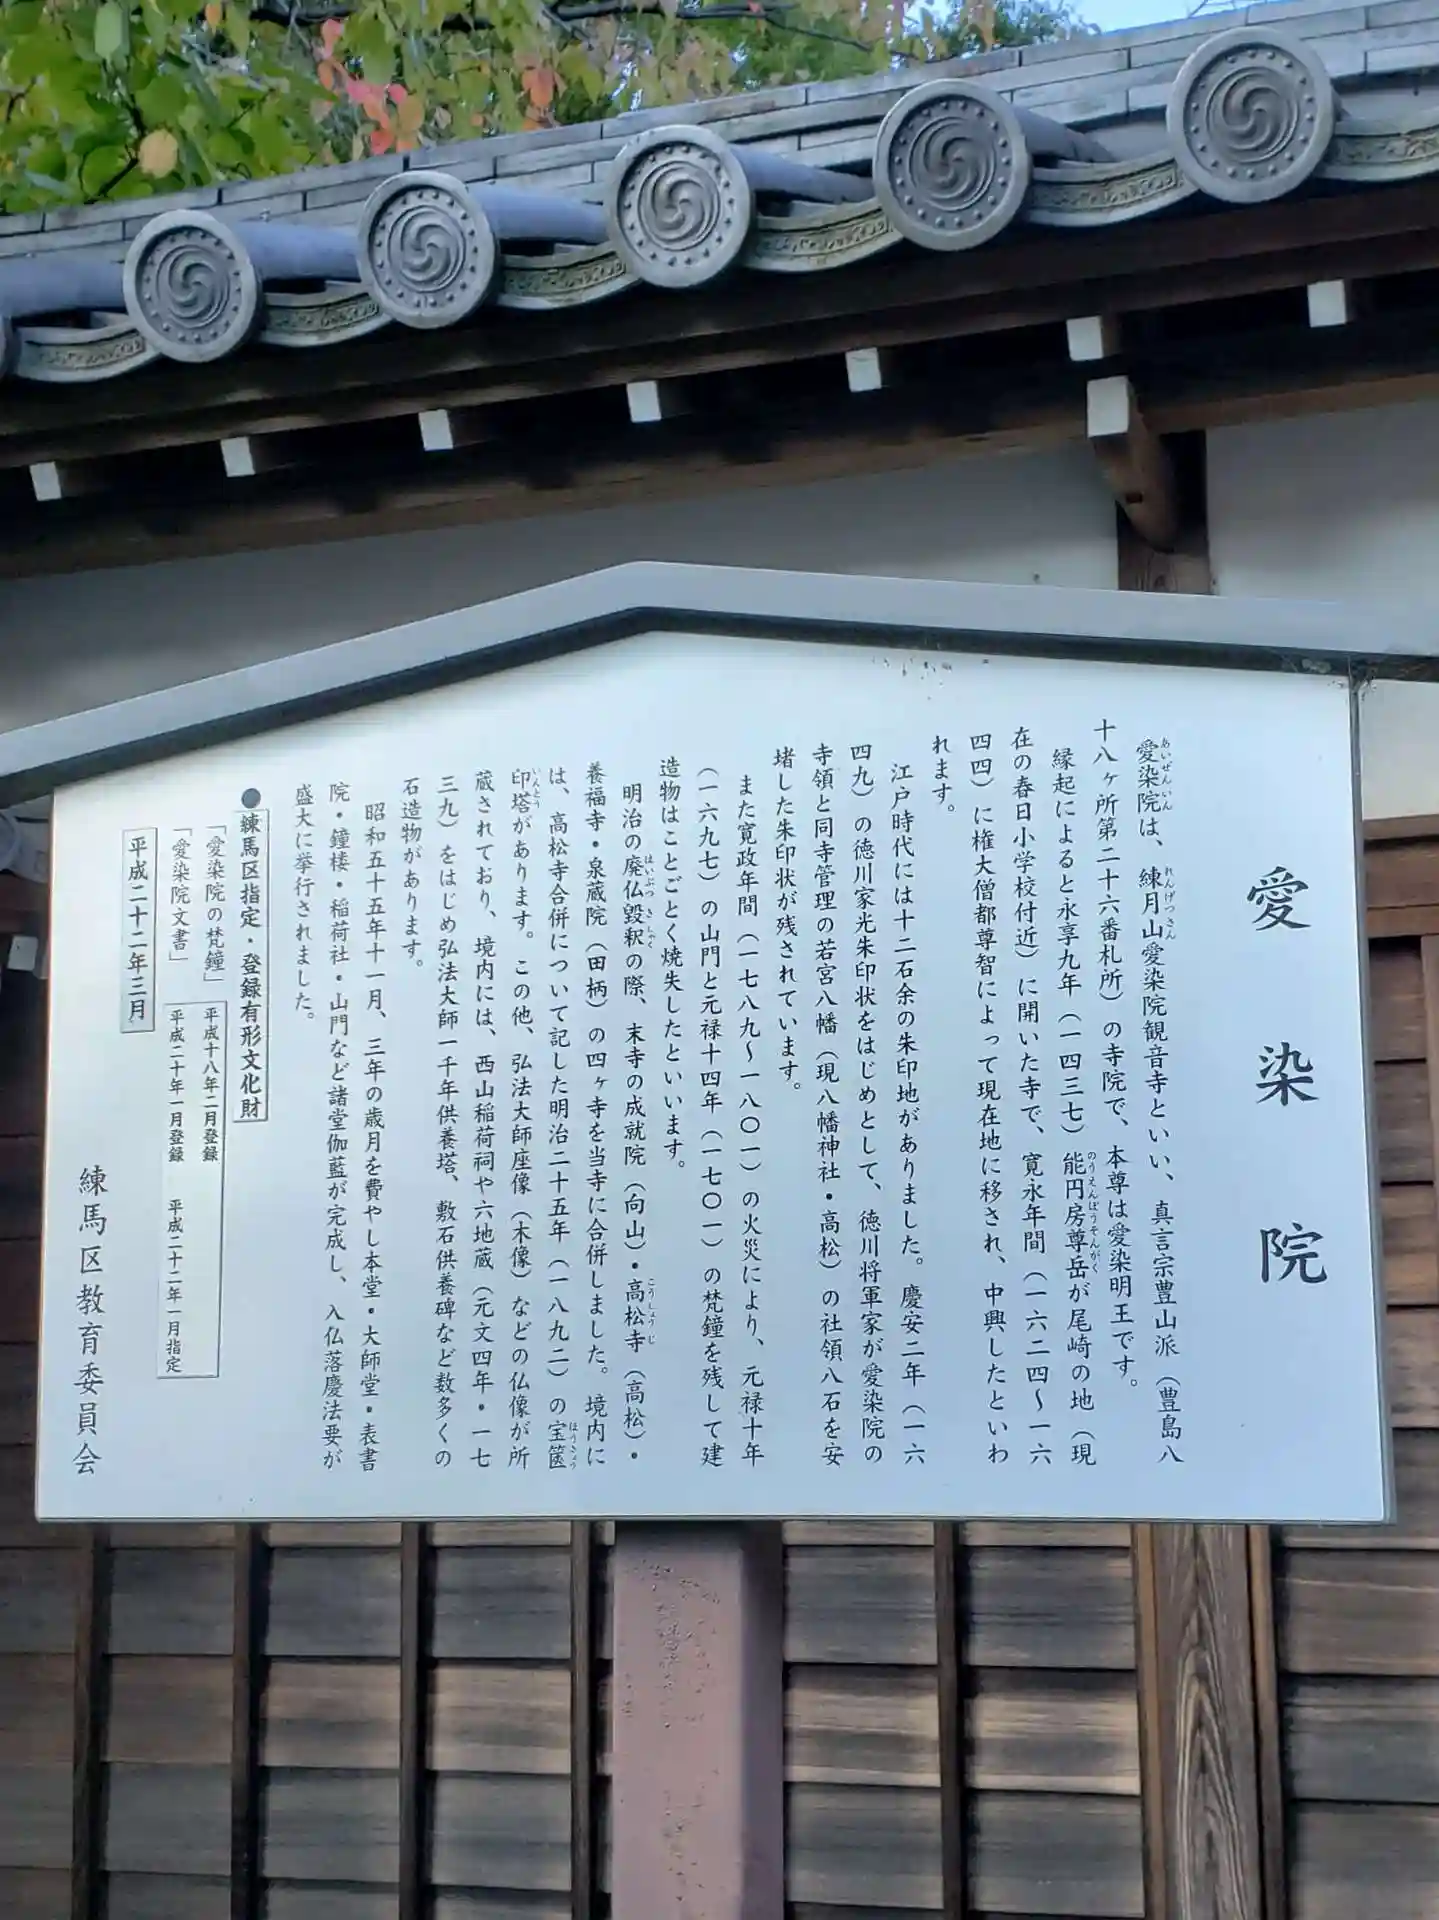 愛染院
愛染院は、練月山愛染院観音寺といい、真言宗豊山派（豊島八
十八ヶ所第二十六番札所）の寺院で、本尊は愛染明王です。
縁起によると永享九年（一四三七）能円房尊岳が尾崎の地（現
在の春日小学校付近）に開いた寺で、寛永年間（一六二四〜一六
四四）に権大僧都尊智によって現在地に移され、中興したといわ
れます。
江戸時代には十二石余の朱印地がありました。慶安二年（一六
四九）の徳川家光朱印状をはじめとして、徳川将軍家が愛染院の
寺領と同寺管理の若宮八幡（現八幡神社・高松）の社領八石を安
堵した朱印状が残されています。
また寛政年間（一七八九〜一八〇一）の火災により、元禄十年
（一六九七）の山門と元禄十四年（一七〇一）の梵鐘を残して建
造物はことごとく焼失したといいます。
明治の廃仏毀釈の際、末寺の成就院（向山）・高松寺（高松）・
養福寺・泉蔵院（田柄）の四ヶ寺を当寺に合併しました。境内に
は、高松寺合併について記した明治二十五年（一八九二）の宝篋
印塔があります。この他、弘法大師座像（木像）などの仏像が所
蔵されており、境内には、西山稲荷祠や六地蔵（元文四年・一七
三九）をはじめ弘法大師一千年供養塔、敷石供養碑など数多くの
石造物があります。
昭和五十五年十一月、三年の歳月を費やし本堂・大師堂・表書
院・鐘楼・稲荷社・山門など諸堂伽藍が完成し、入仏落慶法要が
盛大に挙行されました。
●練馬区指定・登録有形文化財
「愛染院の梵鐘」 平成十八年二月登録
「愛染院文書」 平成二十年一月登録 平成二十二年一月指定
平成二十二年三月
練馬区教育委員会